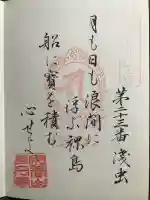 第二十三番 浅虫
月も日も浪間に
浮ぶ裸島
船に寳を積む
心せよ